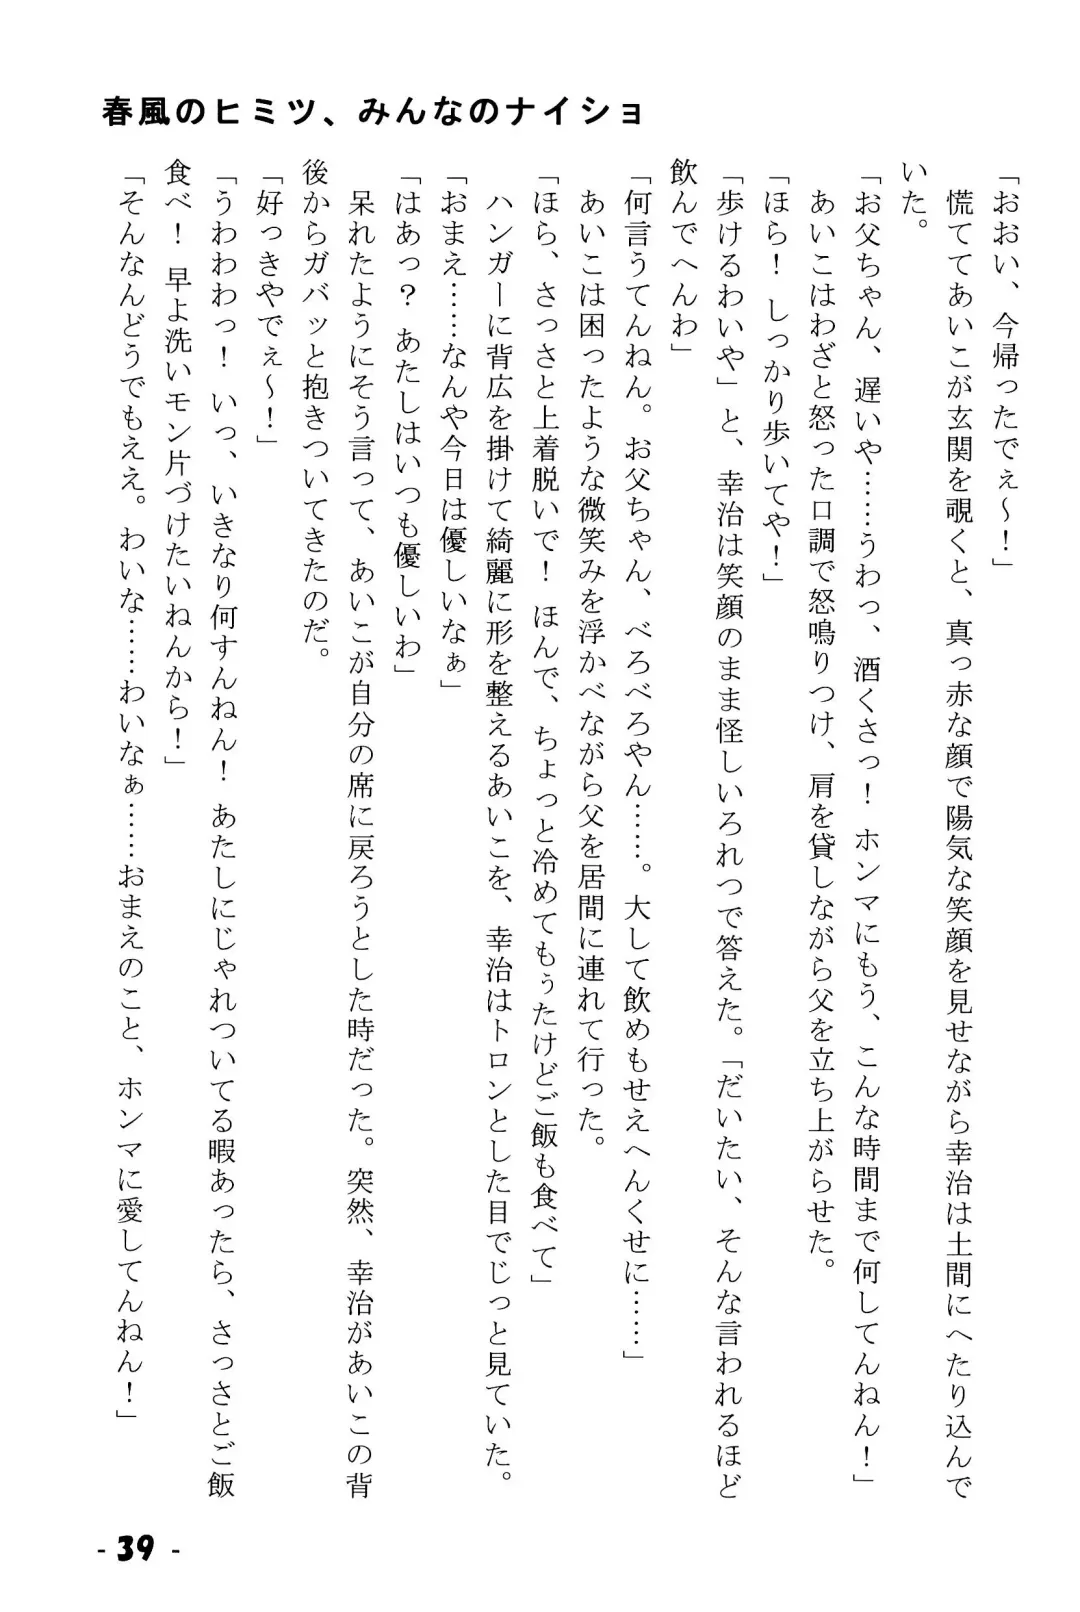 春風のヒミツ、みんなのナイショ
「おおい、今帰ったでぇ～！」
慌ててあいこが玄関を覗くと、真っ赤な顔で陽気な笑顔を見せながら幸治は土間にへたり込んで
いた。
「お父ちゃん、遅いや……うわっ、酒くさっ！ ホンマにもう、こんな時間まで何してんねん！」
あいこはわざと怒った口調で怒鳴りつけ、肩を貸しながら父を立ち上がらせた。
「ほら！ しっかり歩いてや！」
「歩けるわいや」と、幸治は笑顔のまま怪しいろれつで答えた。「だいたい、そんな言われるほど
飲んでへんわ」
「何言うてんねん。お父ちゃん、べろべろやん……。大して飲めもせえへんくせに……」
あいこは困ったような微笑みを浮かべながら父を居間に連れて行った。
「ほら、さっさと上着脱いで！ ほんで、ちょっと冷めてもぅたけどご飯も食べて」
ハンガーに背広を掛けて綺麗に形を整えるあいこを、幸治はトロンとした目でじっと見ていた。
「おまえ……なんや今日は優しいなぁ」
「はあっ？ あたしはいつも優しいわ」
呆れたようにそう言って、あいこが自分の席に戻ろうとした時だった。突然、幸治があいこの背
後からガバッと抱きついてきたのだ。
「好っきやでぇ～！」
「うわわわっ！ いっ、いきなり何すんねん！ あたしにじゃれついてる暇あったら、さっさとご飯
食べ！ 早よ洗いモン片づけたいねんから！」
「そんなんどうでもええ。わいな……わいなぁ……おまえのこと、ホンマに愛してんねん！」
- 39 -